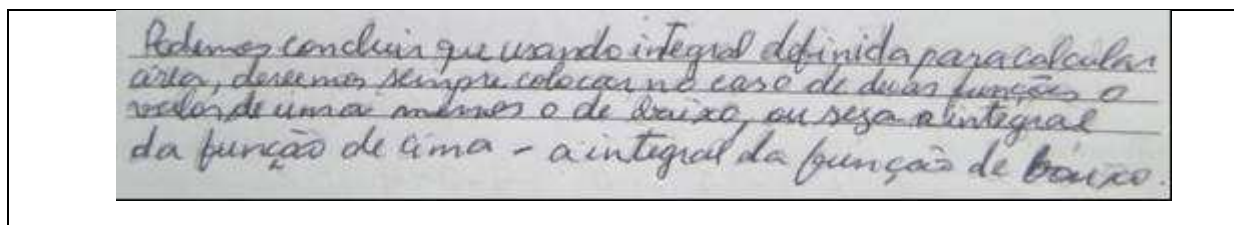 Podemos concluir que usando integral definida para calcular
área, devemos sempre colocar no caso de duas funções o
valor de uma menos o de baixo, ou seja a integral
da função de cima - a integral da função de baixo.